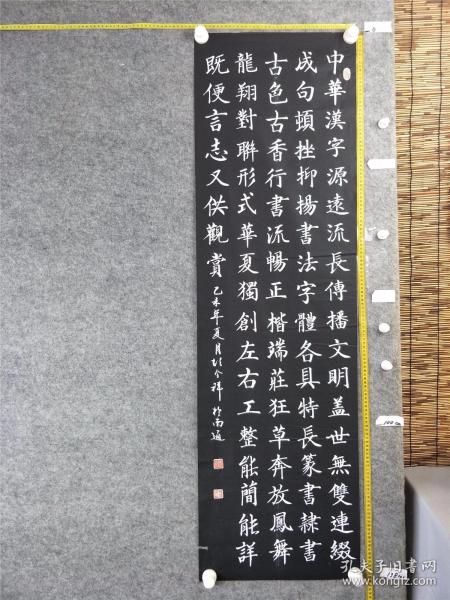 中華漢字源遠流長傳播文明蓋世無雙連綴
成句頓挫抑揚書法字體各具特長篆書隸書
古色古香行書流暢正楷端莊狂草奔放鳳舞
龍翔對聯形式華夏獨創左右工整能簡能詳
既便言志又供觀賞
乙未年夏月 今祥於南通
孔夫子旧书网